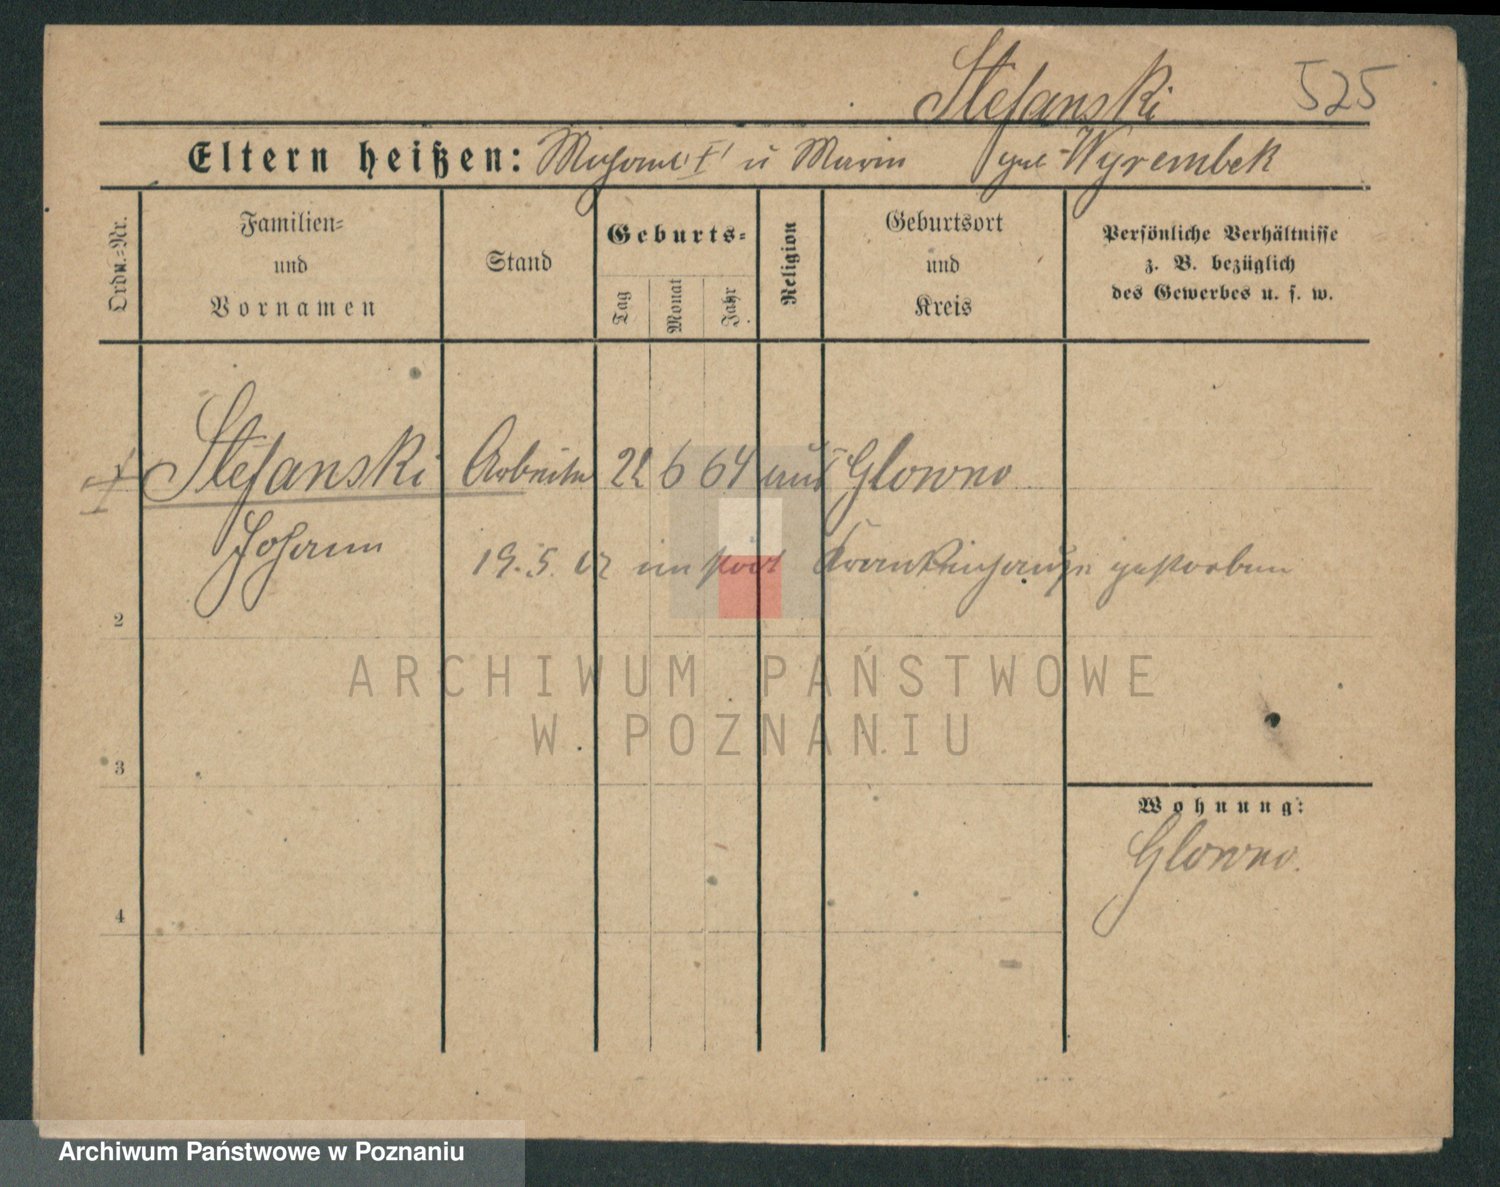 Stefanski 525
Eltern heißen: u Maria geb Wyrembek
Ordn.-Nr.
Familien-
und
Vornamen
Stand
Geburts-
Tag
Monat
Jahr
Religion
Geburtsort
und
Kreis
Persönliche Verhältnisse
z. B. bezüglich
des Gewerbes u. s. w.
Stefanski Arbeiter 22 6 64 aus Glowno
Johann 19. 5. 07 im Krankenhause gestorben
2
ARCHIWUM PAŃSTWOWE
W POZNANIU
3
Wohnung:
Glowno.
4
Archiwum Państwowe w Poznaniu